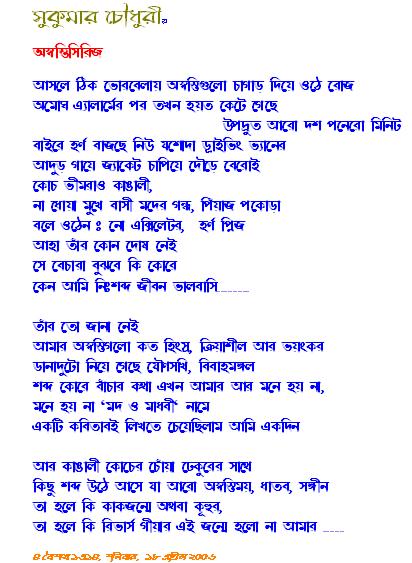 সুকুমার চৌধুরী
অস্বস্তিসিরিজ
আসলে ঠিক ভোরবেলায় অস্বস্তিগুলো চাগাড় দিয়ে ওঠে রোজ
অমোঘ এ্যালার্মের পর তখন হয়ত কেটে গেছে
উপদ্রুত আরো দশ পনেরো মিনিট
বাইরে হর্ণ বাজছে নিউ যশোদা ড্রাইভিং ভ্যানের
আদুড় গায়ে জ্যাকেট চাপিয়ে দৌড়ে বেরোই
কোচ ভীমরাও কাঙালী,
না ধোয়া মুখে বাসী মদের গন্ধ, পিঁয়াজ পকোড়া
বলে ওঠেন : নো এক্সিলেটর, হর্ণ প্লিজ
আহা তাঁর কোন দোষ নেই
সে বেচারা বুঝবে কি কোরে
কেন আমি নিঃশব্দ জীবন ভালবাসি......
তাঁর তো জানা নেই
আমার অস্বস্তিগুলো কত হিংস্র, ক্রিয়াশীল আর ভয়ংকর
ডানাদুটো নিয়ে গেছে যৌগসখি, বিবাহমঙ্গল
শব্দ কোরে বাঁচার কথা এখন আমার আর মনে হয় না,
মনে হয় না ‘মদ ও মাধবী‘ নামে
একটি কবিতারই লিখতে চেয়েছিলাম আমি একদিন
আর কাঙালী কোচের চোঁয়া ঢেকুরের সাথে
কিছু শব্দ উঠে আসে যা আরো অস্বস্তিময়, ধাতব, সঙ্গীন
তা হলে কি কাকজন্মে অথবা কূহুর,
তা হলে কি রিভার্স গীয়ার এই জন্মে হলো না আমার ....
৪ বৈশাখ ১৩১৪, শনিবার, ১৮ এপ্রিল ২০০৬